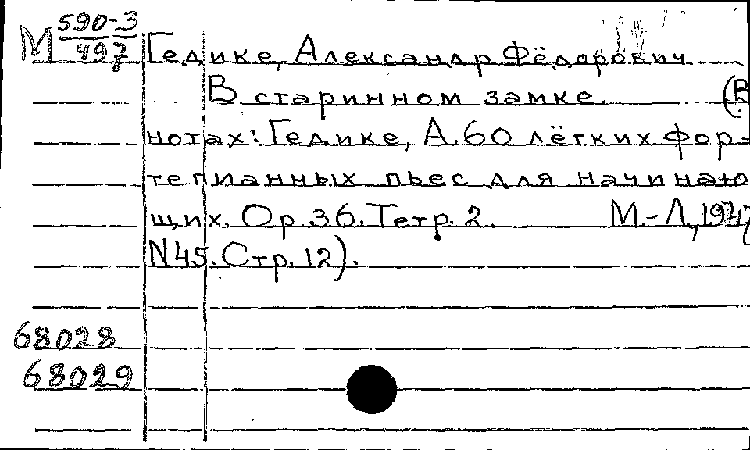 М 590-3
497
Гедике, Александр Фёдорович
В старинном замке. (В
нотах: Гедике, А. 60 лёгких фор-
тепианных пьес для начинаю-
щих. Ор. 36. Тетр. 2. М.-Л.,
N45. Стр. 12).
68028
68029